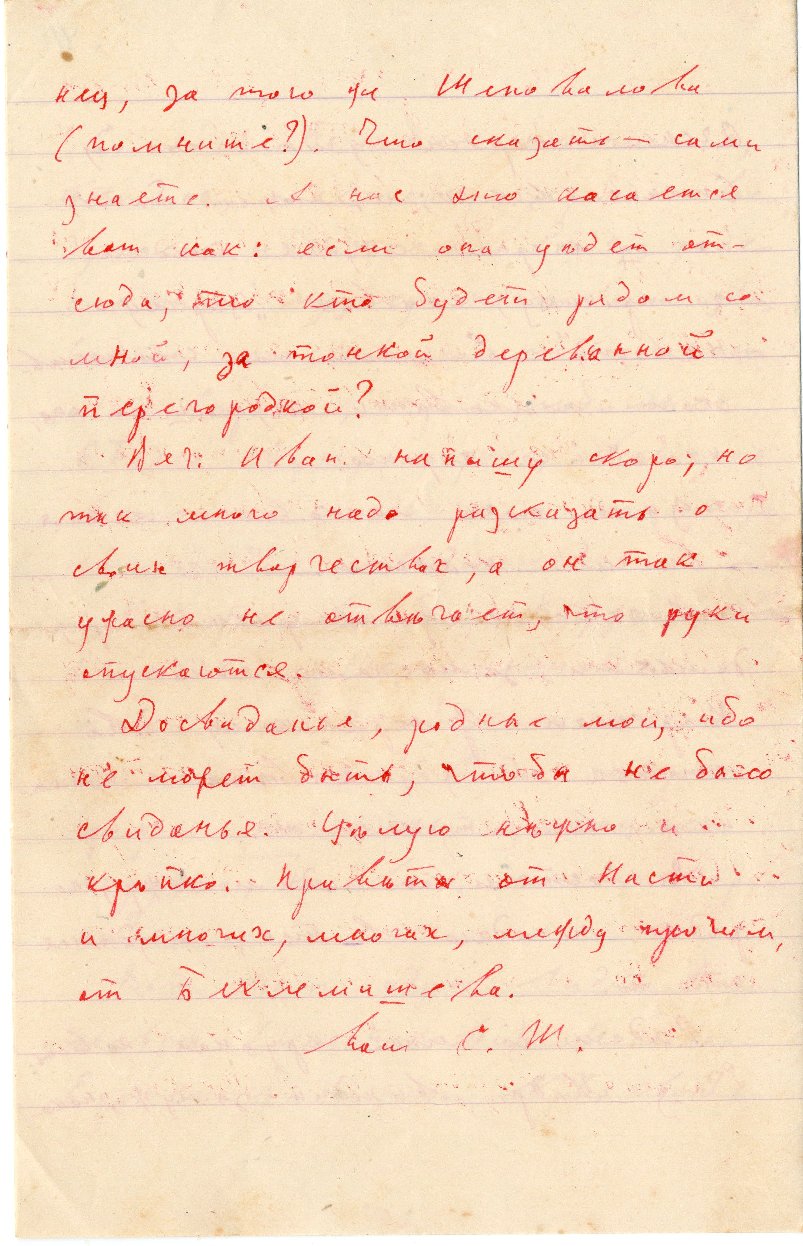 нец, за того же Шеповалова
(помните?). Что сказать — сами
знаете. А нас это касается
вот как: если она уѣдет от-
сюда, то кто будет рядом со
мной, за тонкой деревянной
перегородкой?
Вяч. Иван. напишу скоро; но
так много надо разсказать о
своих творчествах, а он так
ужасно не отвѣчает, что руки
опускаются.
Досвиданья, родные мои, ибо
не может быть, чтобы не было
свиданья. Цѣлую нѣжно и
крѣпко. Привѣты от Насти
и многих, многих, между прочим,
от Беклемишева.
ваш С. Ш.